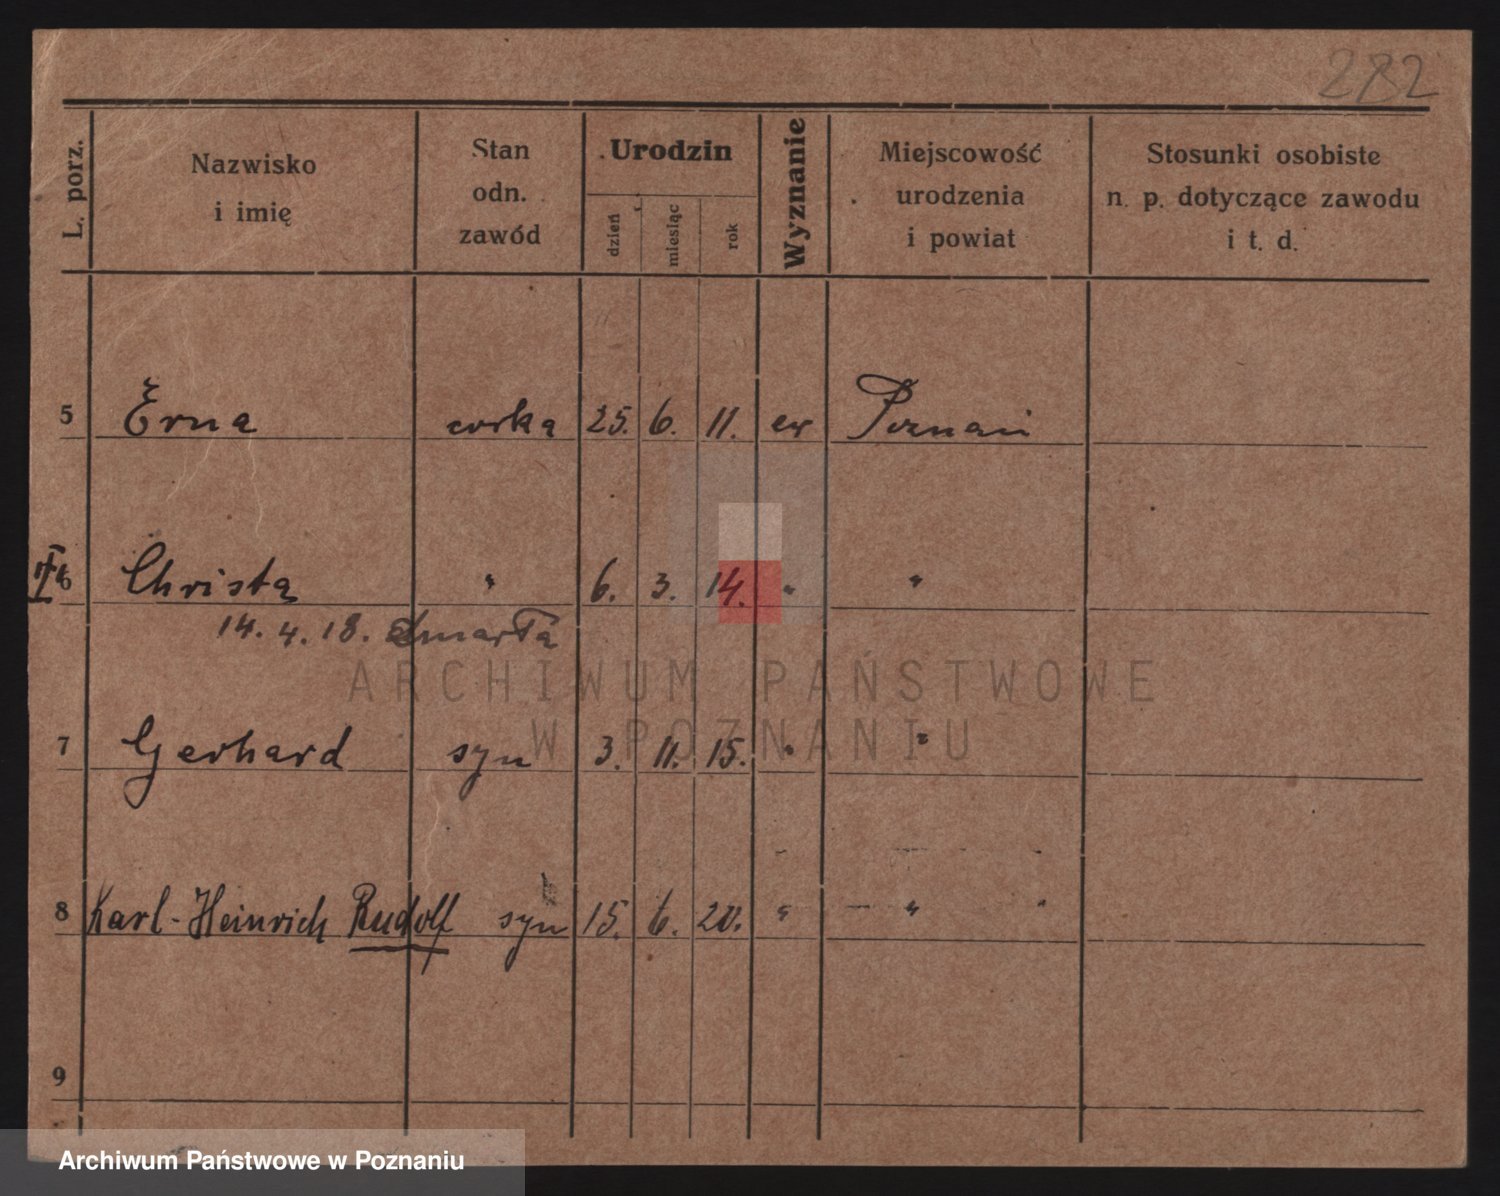 282
L. porz.
Nazwisko
i imię
Stan
odn.
zawód
Urodzin
dzień
miesiąc
rok
Wyznanie
Miejscowość
urodzenia
i powiat
Stosunki osobiste
n. p. dotyczące zawodu
i t. d.
5 Erna corka 25. 6. 11. ew Poznań
6 Christa " 6. 3. 14. " "
14. 4. 18. zmarła
ARCHIWUM PAŃSTWOWE
W POZNANIU
7 Gerhard syn 3. 11. 15. " "
8 Karl-Heinrich Rudolf syn 15. 6. 20. " " "
9
Archiwum Państwowe w Poznaniu